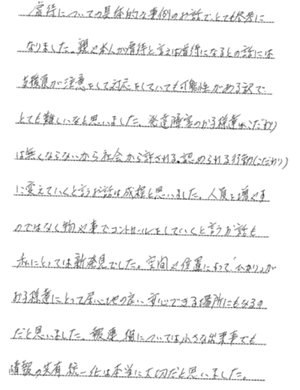 虐待についての具体的な事例のお話でとても参考に
なりました。親や本人が虐待と言えば虐待になるとの話には
支援員が注意をして対応をしていても可能性がある訳で
とても難しいなと思いました。発達障害のお子様達の(こだわり)
は無くならないから社会から許される。認められる行動(こだわり)
に変えていくと言うお話は成程と思いました。人員を増やす
のではなく物や事でコントロールをしていくと言うお話も
私にとっては新発見でした。空間や位置によって「こだわり」が
お子様達にとって居心地の良い、安心できる場所にもなるの
だと思いました。報連相については小さな出来事でも
情報の共有、統一化は本当に大切だと思いました。